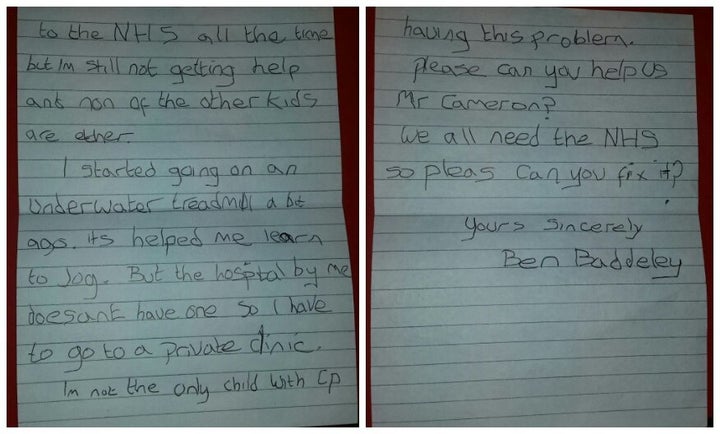 to the NHS all the time
but Im still not getting help
ant non of the other kids
are ether.
I started going on an
underwater treadmill a bit
ago. its helped me learn
to Jog. But the hospital by me
doesant have one so I have
to go to a private clinic.
Im not the only child with CP
having this problem.
please can you help us
Mr Cameron?
We all need the NHS
so pleas can you fix it?
Yours Sincerely
Ben Baddeley